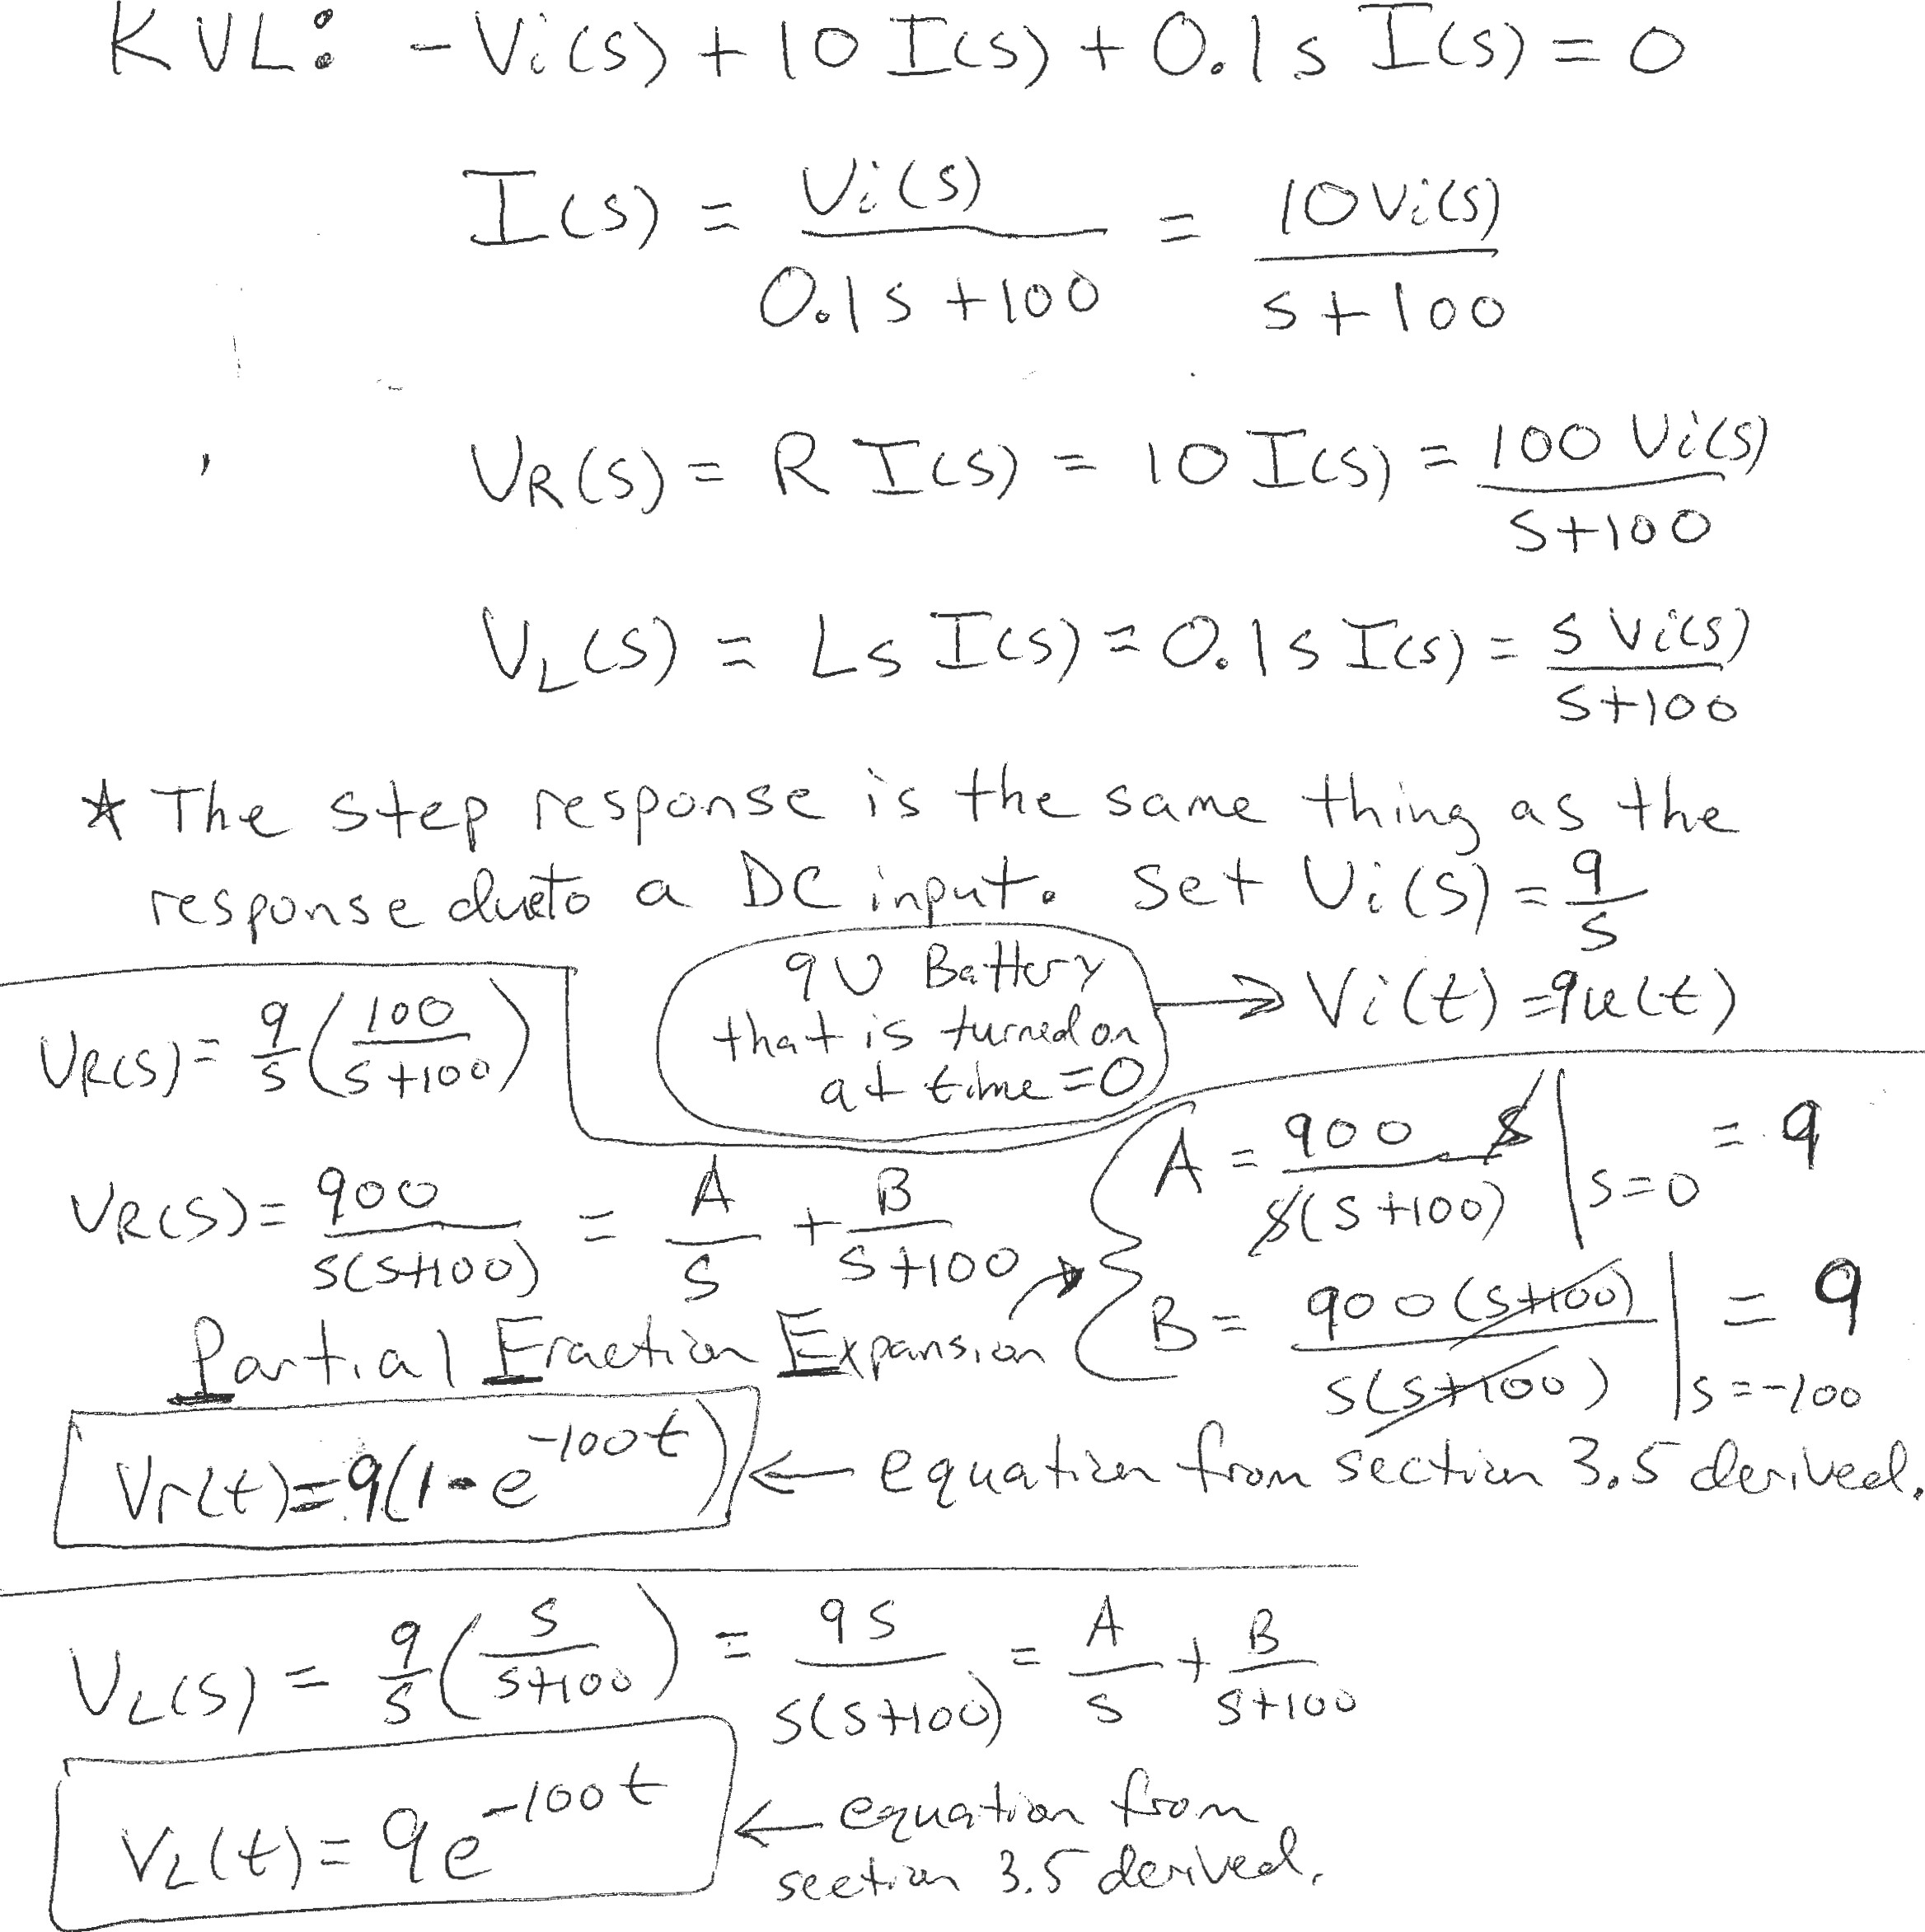 KVL: -Vi(s) + 10 I(s) + 0.1s I(s) = 0
I(s) = Vi(s) / (0.1s + 100) = 10Vi(s) / (s + 100)
VR(s) = R I(s) = 10 I(s) = 100 Vi(s) / (s+100)
VL(s) = Ls I(s) = 0.1s I(s) = s Vi(s) / (s+100)
* The step response is the same thing as the
response due to a DC input. Set Vi(s) = 9/s
9V Battery
that is turned on
at time = 0
→ Vi(t) = 9u(t)
VR(s) = 9/s (100 / (s+100))
VR(s) = 900 / (s(s+100)) = A/s + B/(s+100)
Partial Fraction Expansion →
A = 900 s / (s(s+100)) | s=0 = 9
B = 900(s+100) / (s(s+100)) | s=-100 = 9
Vr(t) = 9(1-e^-100t) ← equation from section 3.5 derived.
VL(s) = 9/s (s / (s+100)) = 9s / (s(s+100)) = A/s + B/(s+100)
VL(t) = 9e^-100t ← equation from
section 3.5 derived.